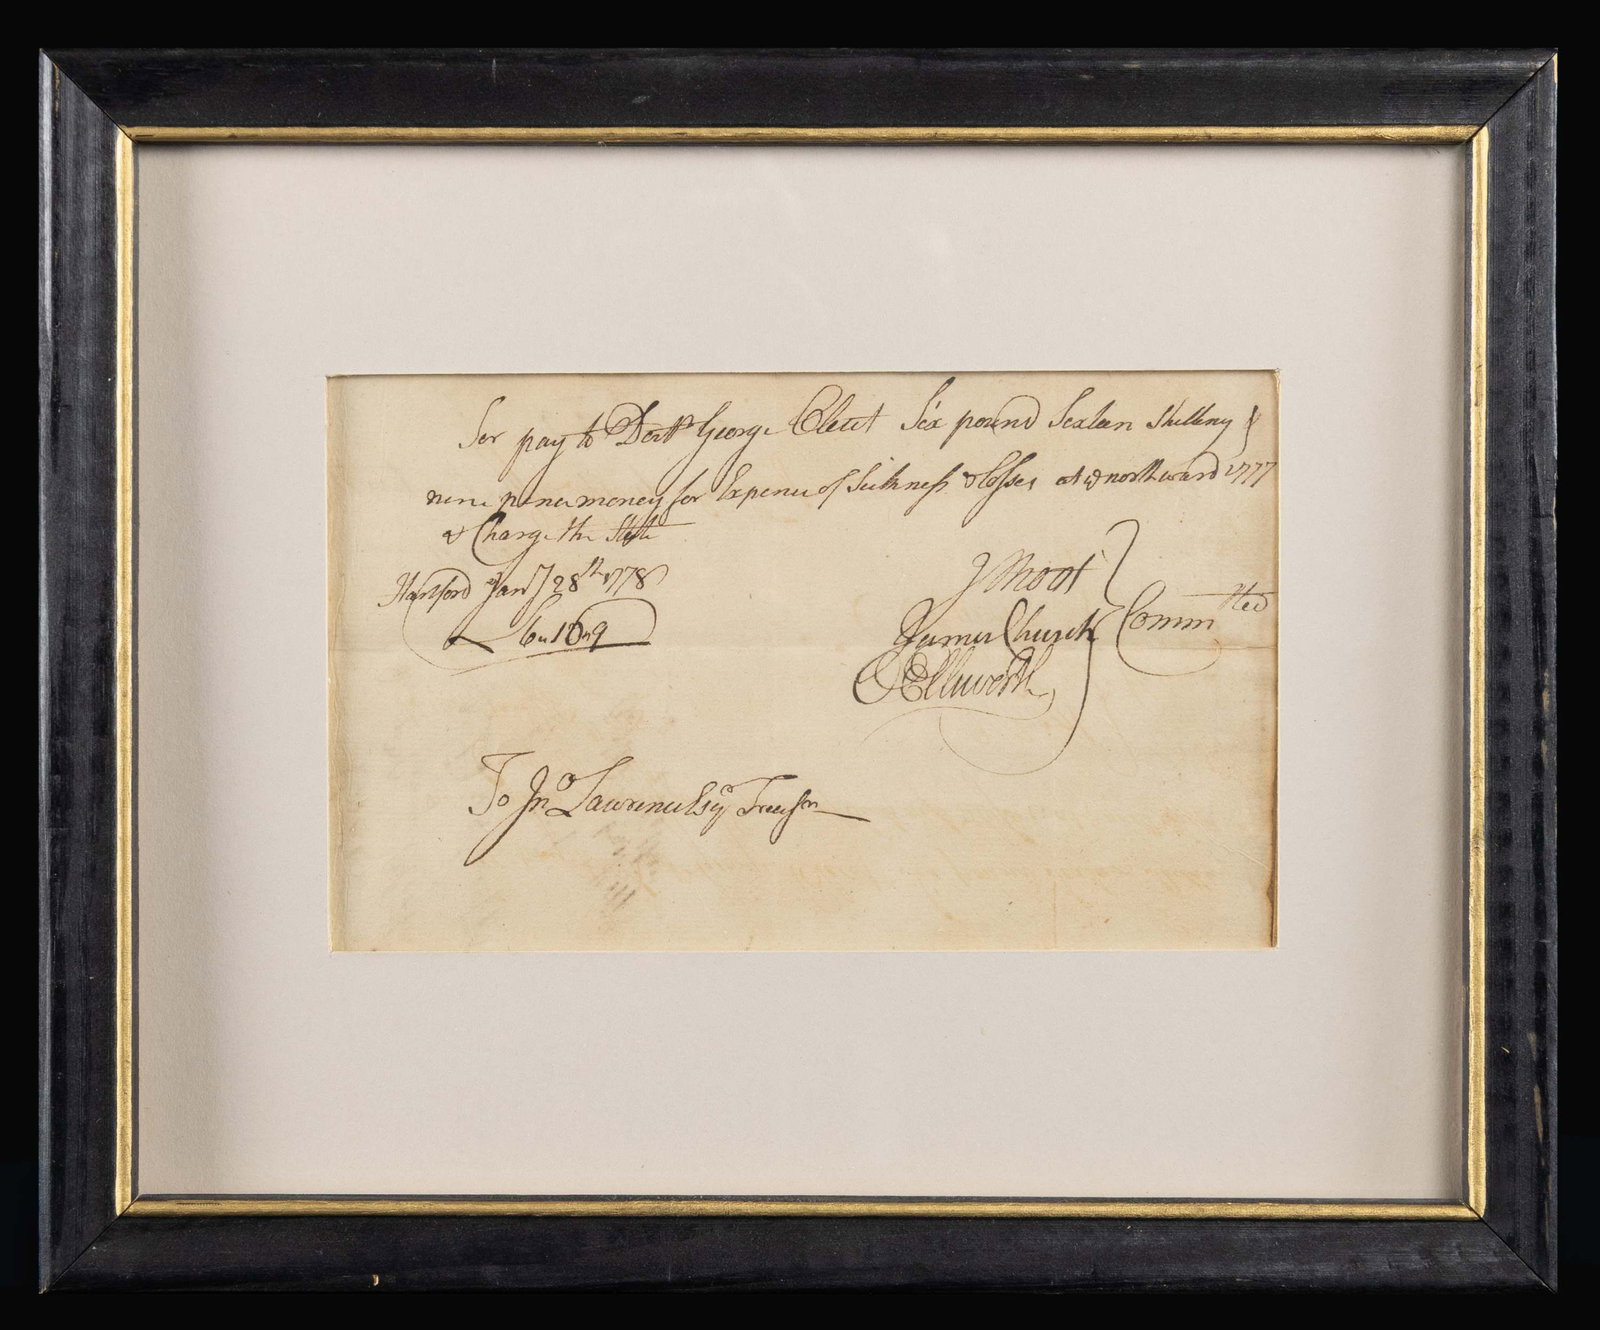 Ser pay to Doctr George Cleut Six pound Sixteen Shilling
nine pence money for Expence of Sickness & losses at ye northward 1777
& Charge the State
Hartford Jany 28th 1778
J Root
James Church Committee
O Ellsworth
£6"16"9
To Jno Lawrence Esqr Treasr